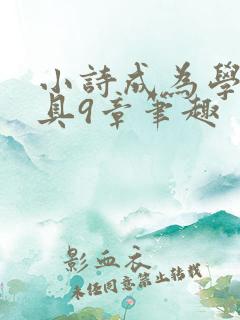 小詩成為學
具9章筆趣
影血衣
未经同意禁止转载